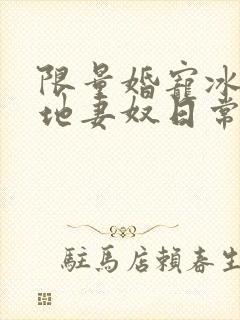 限量婚寵冰
地妻奴日常
駐馬店賴春生